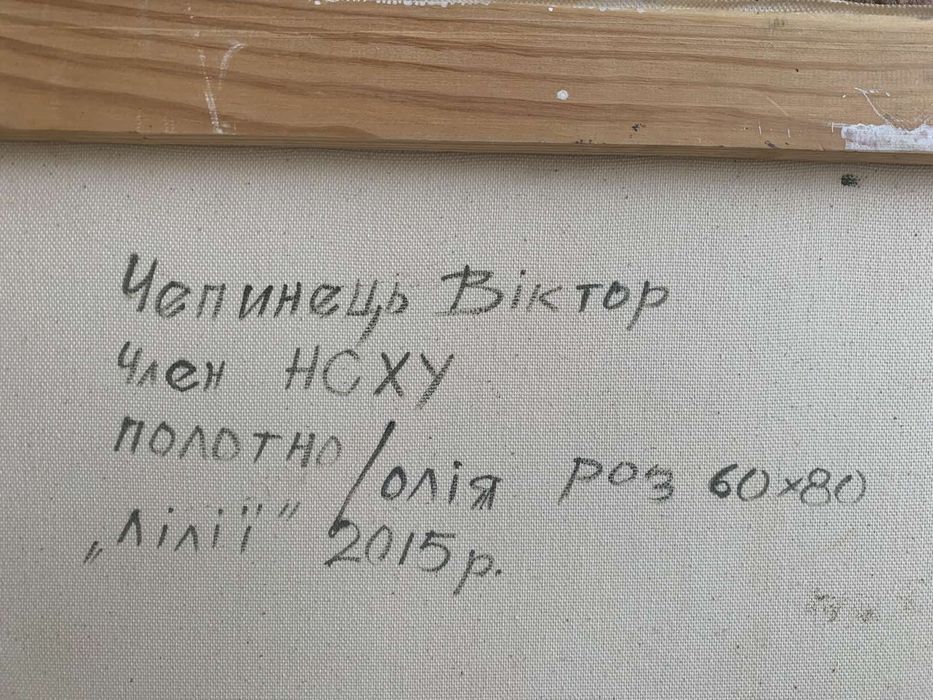 Чепинець Віктор
Член НСХУ
полотно/олія роз 60×80
„Лілії" 2015р.